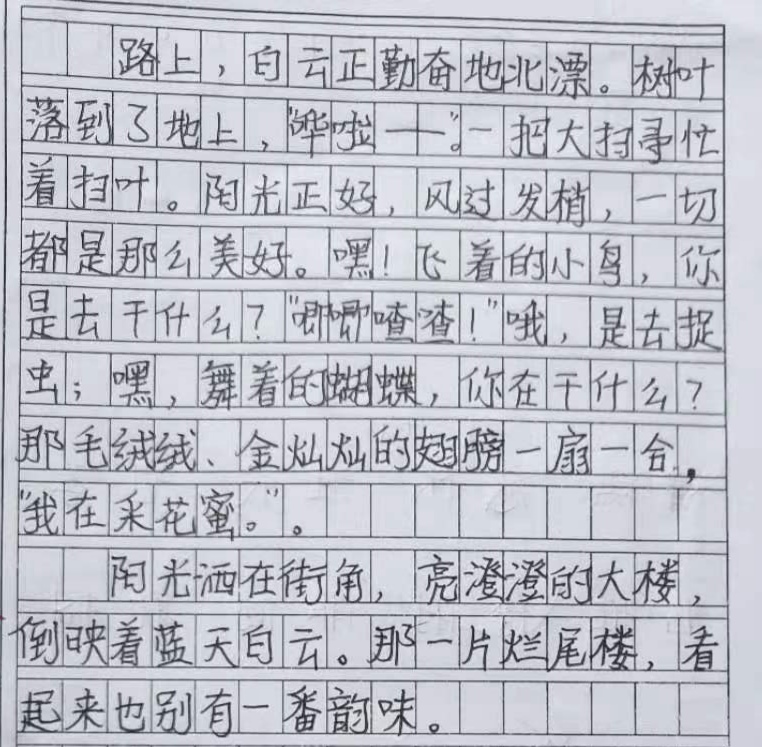 路上，白云正勤奋地北漂。树叶
落到了地上，“哗啦——”。一把大扫帚忙
着扫叶。阳光正好，风过发梢，一切
都是那么美好。嘿！飞着的小鸟，你
是去干什么？“唧唧喳喳！”哦，是去捉
虫；嘿，舞着的蝴蝶，你在干什么？
那毛绒绒、金灿灿的翅膀一扇一合，
“我在采花蜜。”。
阳光洒在街角，亮澄澄的大楼，
倒映着蓝天白云。那一片烂尾楼，看
起来也别有一番韵味。